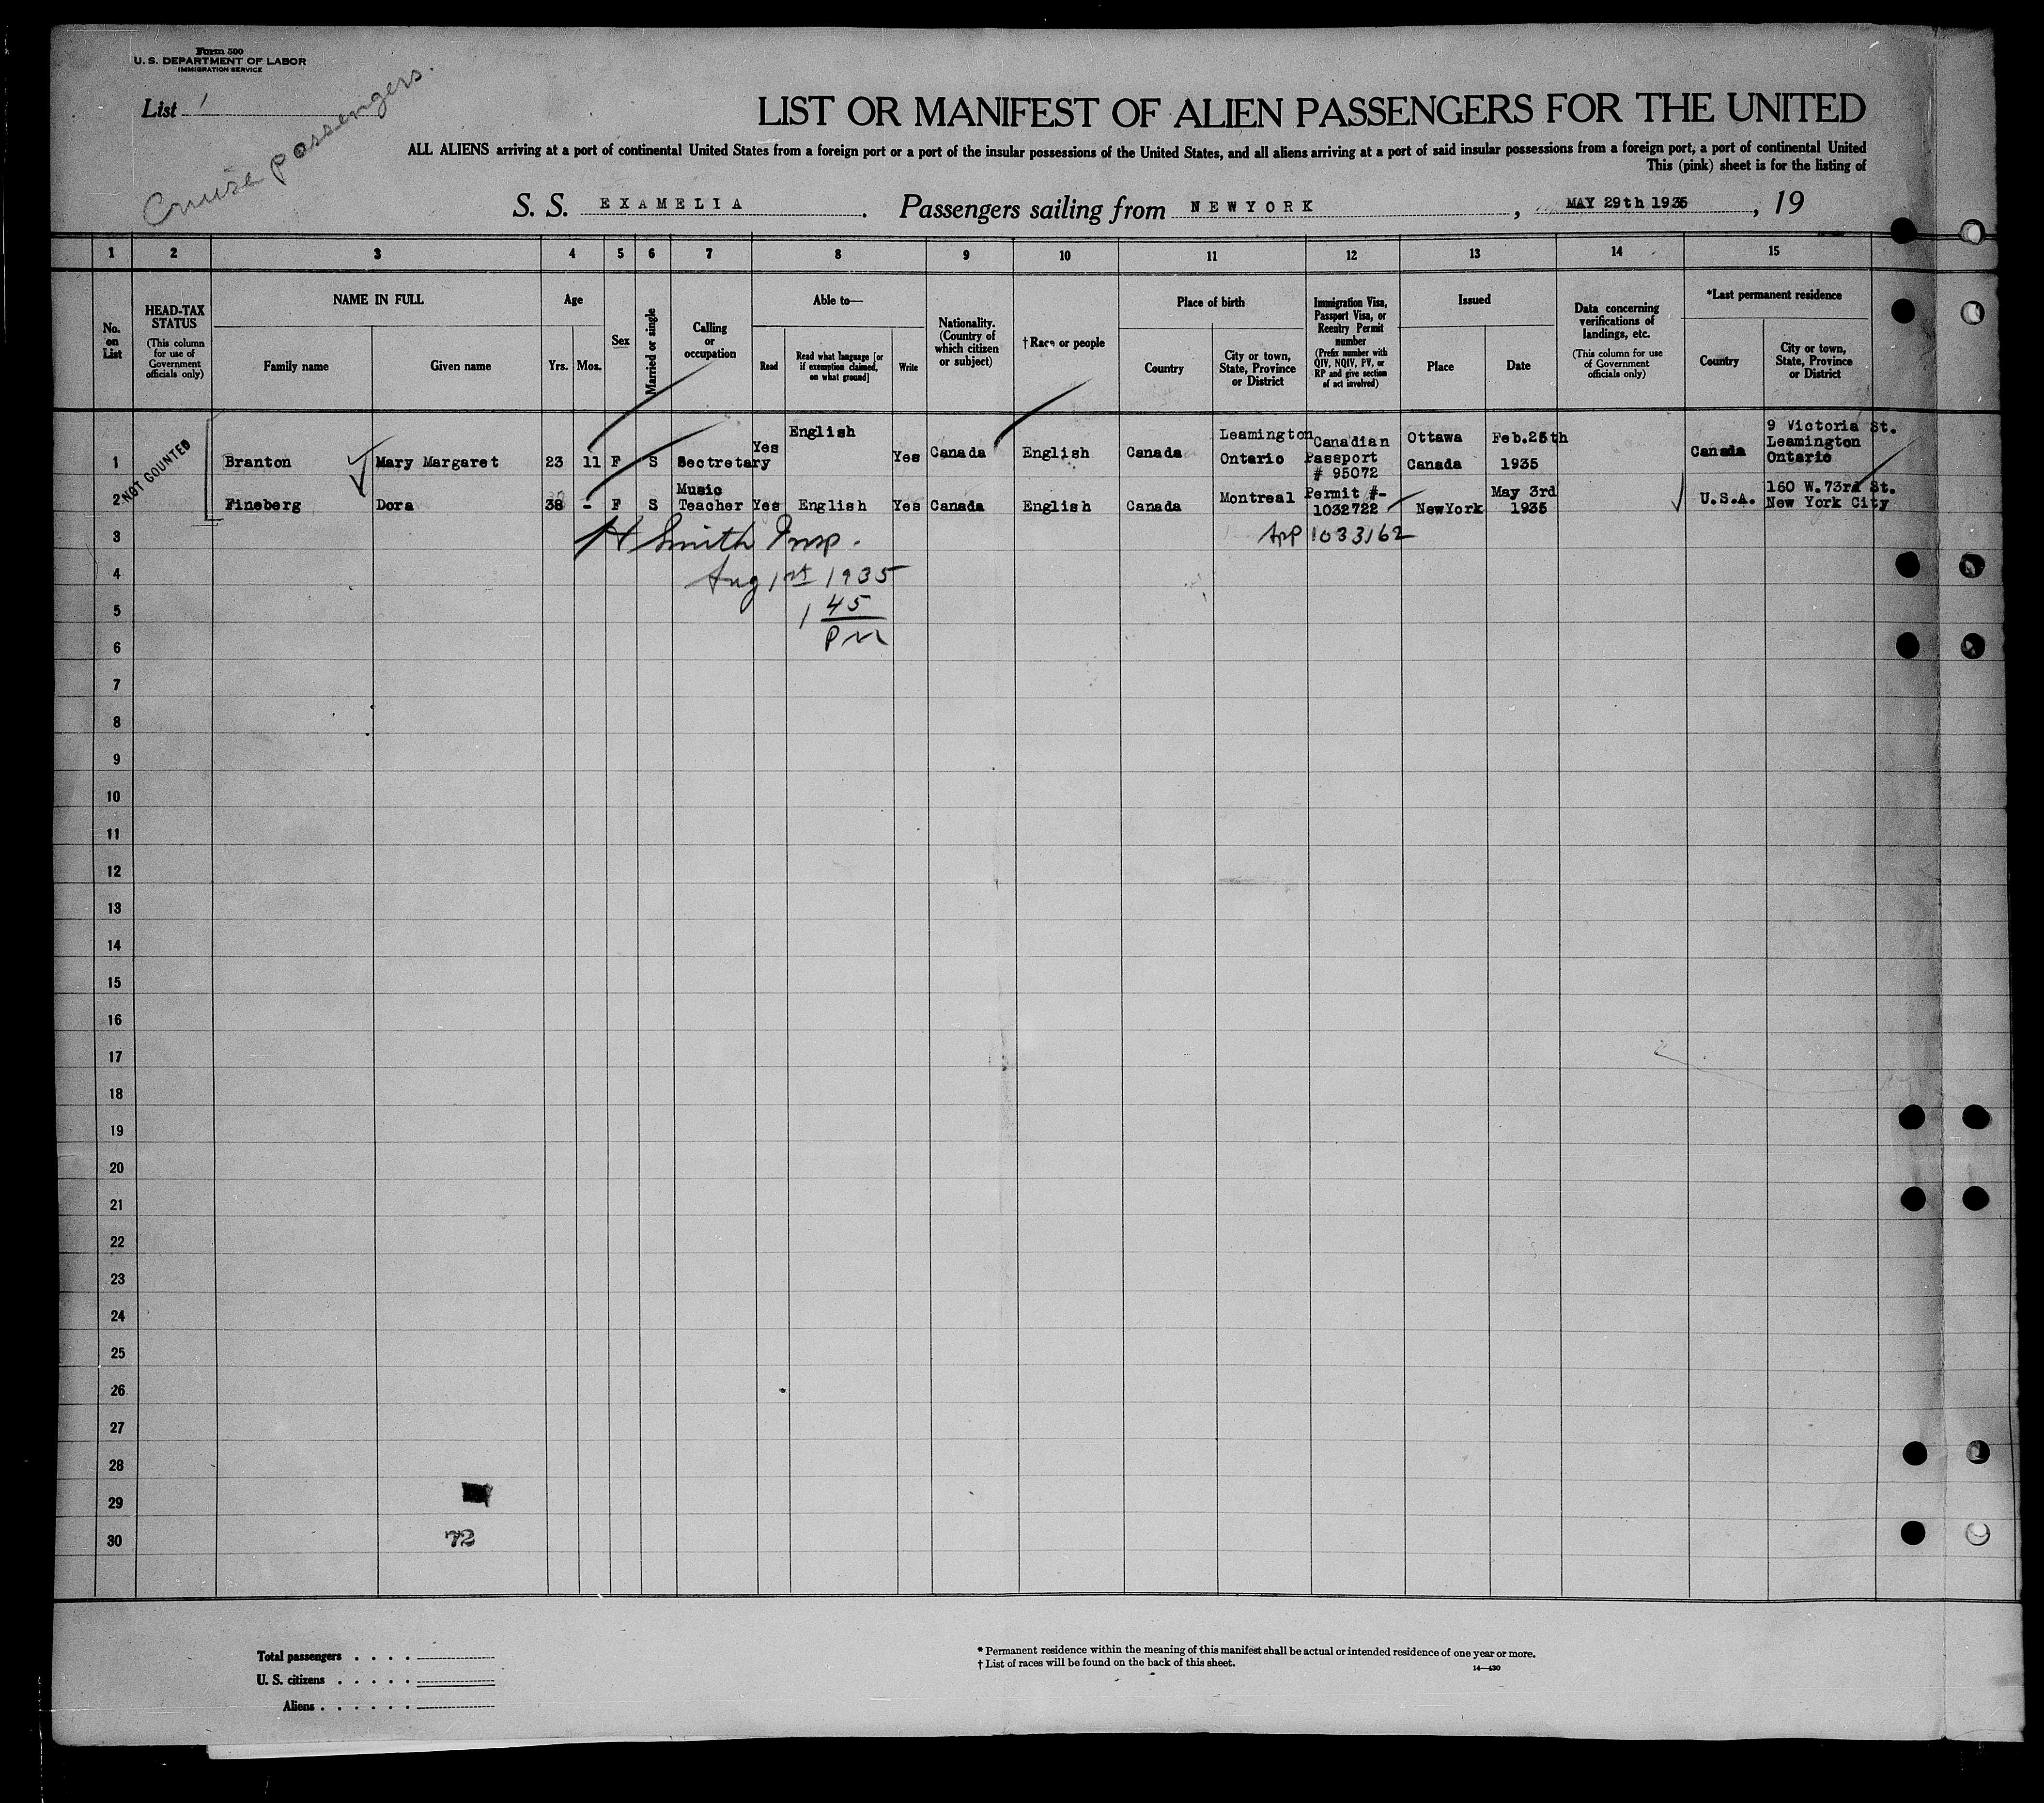 Form 500
U. S. DEPARTMENT OF LABOR
IMMIGRATION SERVICE
List 1
Cruise passengers.
LIST OR MANIFEST OF ALIEN PASSENGERS FOR THE UNITED
ALL ALIENS arriving at a port of continental United States from a foreign port or a port of the insular possessions of the United States, and all aliens arriving at a port of said insular possessions from a foreign port, a port of continental United
This (pink) sheet is for the listing of
S. S. EXAMELIA. Passengers sailing from NEWYORK, MAY 29th 1935, 19
1 2 3 4 5 6 7 8 9 10 11 12 13 14 15
No. on List
HEAD-TAX STATUS (This column for use of Government officials only)
NAME IN FULL Family name Given name
Age Yrs. Mos.
Sex
Married or single
Calling or occupation
Able to— Read Read what language [or if exemption claimed, on what ground] Write
Nationality. (Country of which citizen or subject)
†Race or people
Place of birth Country City or town, State, Province or District
Immigration Visa, Passport Visa, or Reentry Permit number (Prefix number with QIV, NQIV, PV, or RP and give section of act involved)
Issued Place Date
Data concerning verifications of landings, etc. (This column for use of Government officials only)
*Last permanent residence Country City or town, State, Province or District
NOT COUNTED
1 Branton Mary Margaret 23 11 F S Sectretary Yes English Yes Canada English Canada Leamington Ontario Canadian Passport # 95072 Ottawa Canada Feb.25th 1935 Canada 9 Victoria St. Leamington Ontario
2 Fineberg Dora 38 - F S Music Teacher Yes English Yes Canada English Canada Montreal Permit #- 1032722 NewYork May 3rd 1935 U.S.A. 160 W.73rd St. New York City
3 H Smith Insp. App 1033162
4 Aug 1st 1935
5 1 45
6 PM
7
8
9
10
11
12
13
14
15
16
17
18
19
20
21
22
23
24
25
26
27
28
29
30
72
Total passengers . . . .
U. S. citizens . . . . .
Aliens . . . . . .
* Permanent residence within the meaning of this manifest shall be actual or intended residence of one year or more.
† List of races will be found on the back of this sheet.
14—430